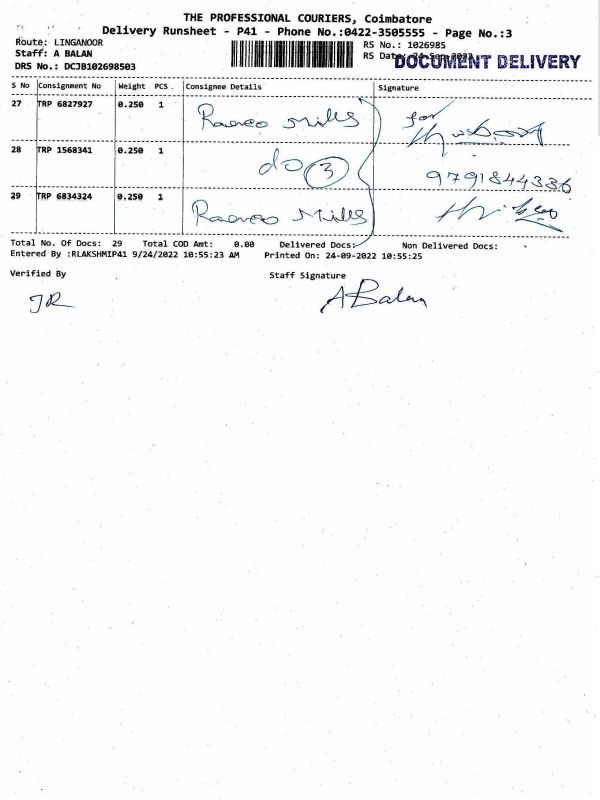 THE PROFESSIONAL COURIERS, Coimbatore
Delivery Runsheet - P41 - Phone No.:0422-3505555 - Page No.:3
Route: LINGANOOR
Staff: A BALAN
DRS No.: DCJB102698503
RS No.: 1026985
RS Date: 24-Sep-2022
DOCUMENT DELIVERY
S No Consignment No Weight PCS. Consignee Details Signature
27 TRP 6827927 0.250 1 Mills for
28 TRP 1568341 0.250 1 do 3 9791844336
29 TRP 6834324 0.250 1 Mills
Total No. Of Docs: 29 Total COD Amt: 0.00 Delivered Docs: Non Delivered Docs:
Entered By :RLAKSHMIP41 9/24/2022 10:55:23 AM Printed On: 24-09-2022 10:55:25
Verified By Staff Signature
JR A Balan